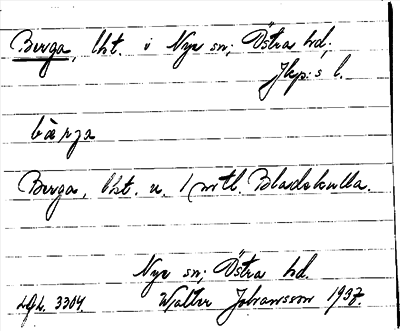 Berga, lht. i Nye sn; Östra hd,
Jkp:s l.
bærja
Berga, lht. u. 1 mtl. Bladskulla.
Nye sn; Östra hd.
Walter Johansson 1937
3304.